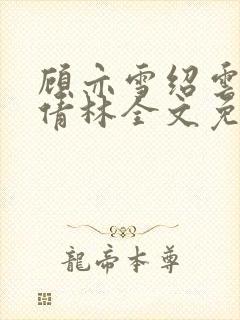 顾亦雪绍雲
倩林全文免
龍帝本尊